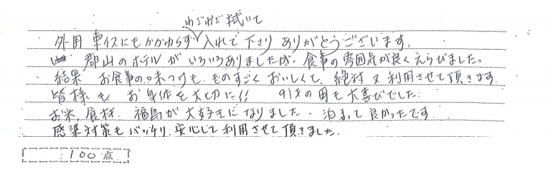 わざわざ拭いて
外用車イスにもかかわらず入れて下さりありがとうございます。
郡山のホテルがいろいろありましたが、食事の雰囲気が良くえらびました。
結果 お食事の味つけも、ものすごくおいしくて、絶対又利用させて頂きます。
皆様も お身体を大切に!! 91才の母も大喜びでした。
お米、食材、福島が大好きになりました。泊まって良かったです
感染対策もバッチリ、安心して利用させて頂きました。
100点